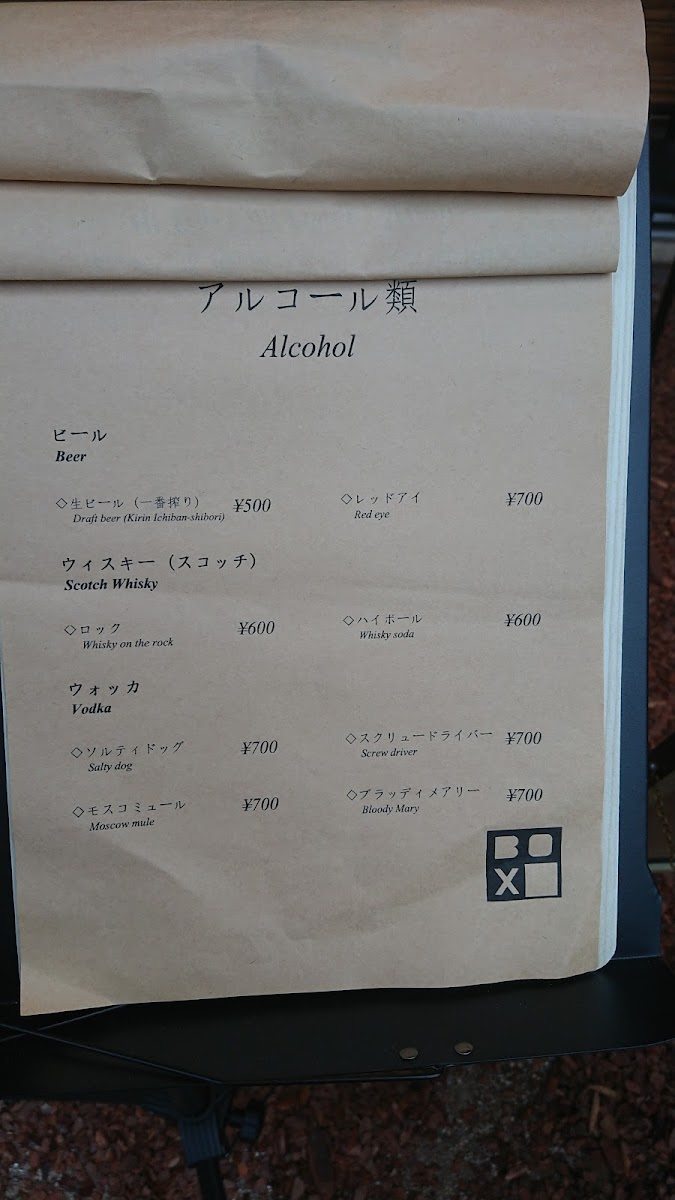 アルコール類
Alcohol
ビール
Beer
◇生ビール（一番搾り） ¥500
Draft beer (Kirin Ichiban-shibori)
◇レッドアイ ¥700
Red eye
ウィスキー（スコッチ）
Scotch Whisky
◇ロック ¥600
Whisky on the rock
◇ハイボール ¥600
Whisky soda
ウォッカ
Vodka
◇ソルティドッグ ¥700
Salty dog
◇スクリュードライバー ¥700
Screw driver
◇モスコミュール ¥700
Moscow mule
◇ブラッディメアリー ¥700
Bloody Mary
BO
X